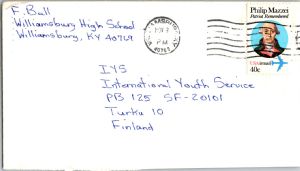 F. Bell
Williamsburg High School
Williamsburg, KY 40769
P M
40769
Philip Mazzei
Patriot Remembered
USAirmail
40c
IYS
International Youth Service
PB 125 SF-20101
Turku 10
Finland